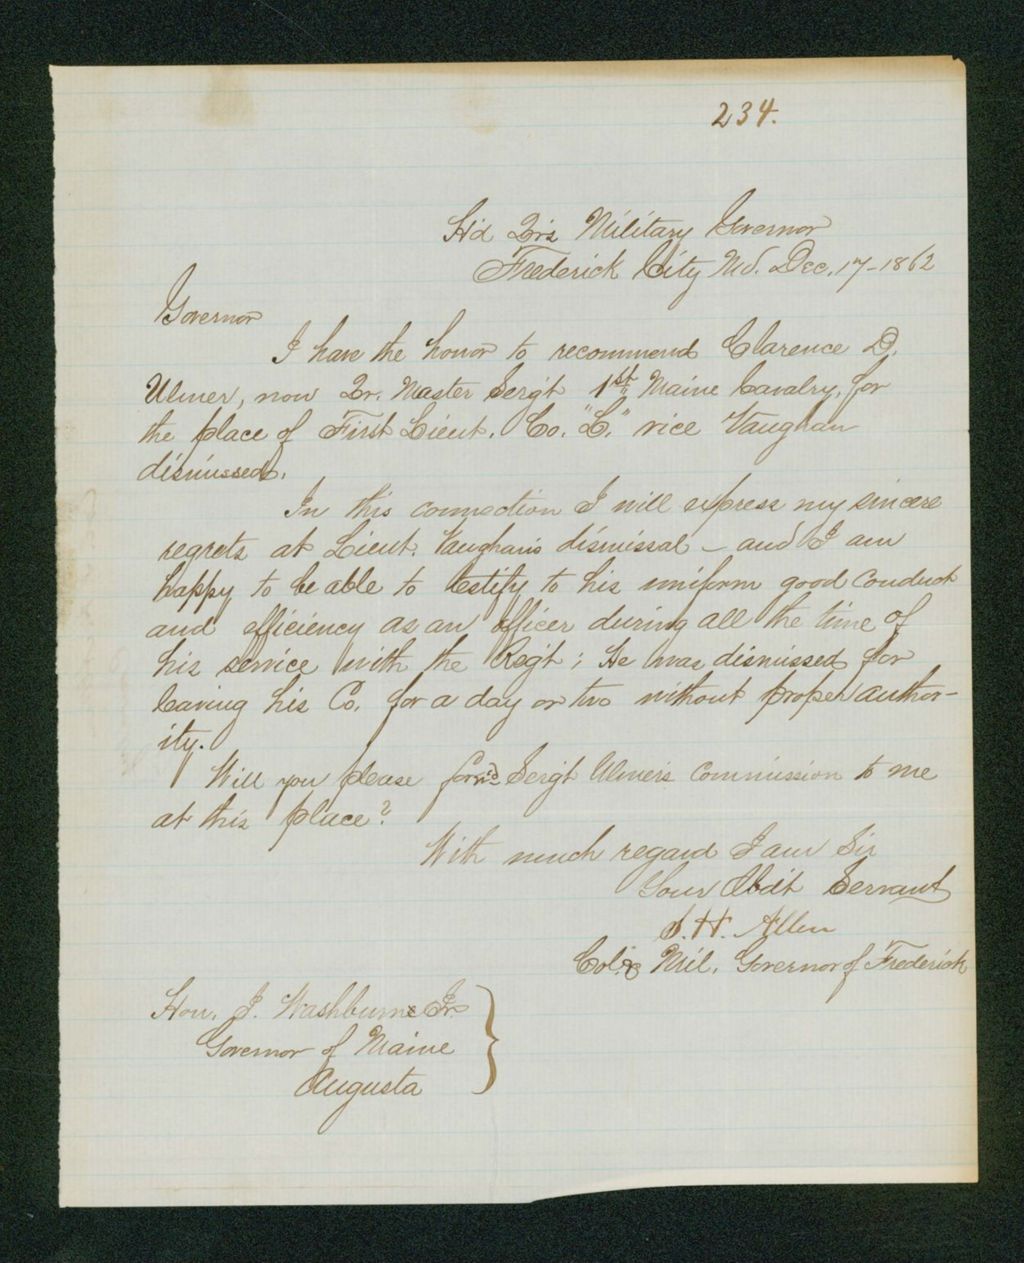 234.
Hd Qrs Military Governor
Frederick City Md. Dec. 17-1862
Governor
I have the honor to recommend Clarence D.
Ulmer, now Qr. Master Sergt 1st Maine Cavalry, for
the place of First Lieut. Co. "L." vice Vaughan
dismissed.
In this connection I will express my sincere
regrets at Lieut. Vaughan's dismissal – and I am
happy to be able to testify to his uniform good conduct
and efficiency as an officer during all the time of
his service with the Regt; He was dismissed for
leaving his Co. for a day or two without proper author-
ity.
Will you please forw'd Sergt Ulmer's commission to me
at this place?
With much regard I am Sir
Your Obdt Servant
S. H. Allen
Col. & Mil. Governor of Frederick
Hon. I. Washburne Jr.
Governor of Maine
Augusta